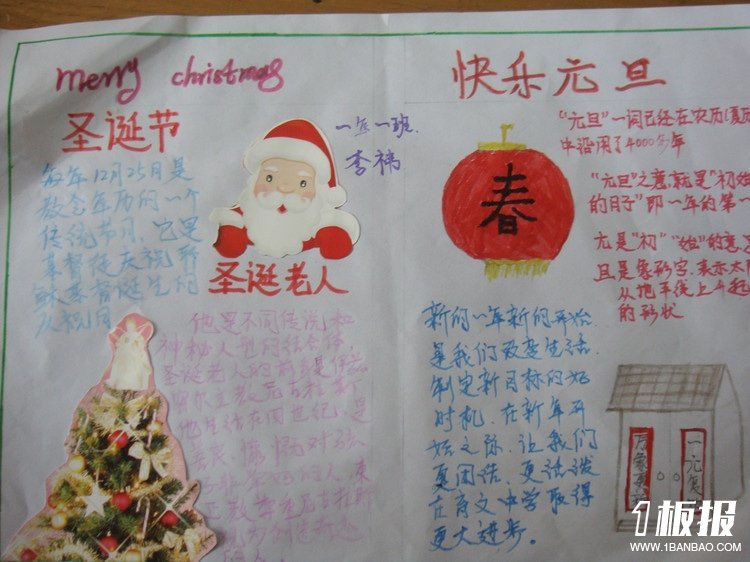 merry christmas
圣诞节
每年12月25日是
教会年历的一个
传统节日，它是
基督徒庆祝耶
稣基督诞生的
庆祝日
一年一班.
李祎
圣诞老人
他是不同传说和
神秘人物的结合体，
圣诞老人的前身是
他生活在四世纪，是
慷慨对孩
快乐元旦
"元旦"一词已经在农历(夏历
中沿用了4000多年
"元旦"之意，就是"初始
的日子"即一年的第一
元是"初""始"的意
旦是象形字，表示太
从地平线上升起
的形状
春
新的一年新的开始
是我们改变生活，
制定新目标的好
时机，在新年开
始之际，让我们
更团结，更活泼
在育文中学取得
更大进步。
万象更
一元复
1板报
WWW.1BANBAO.COM